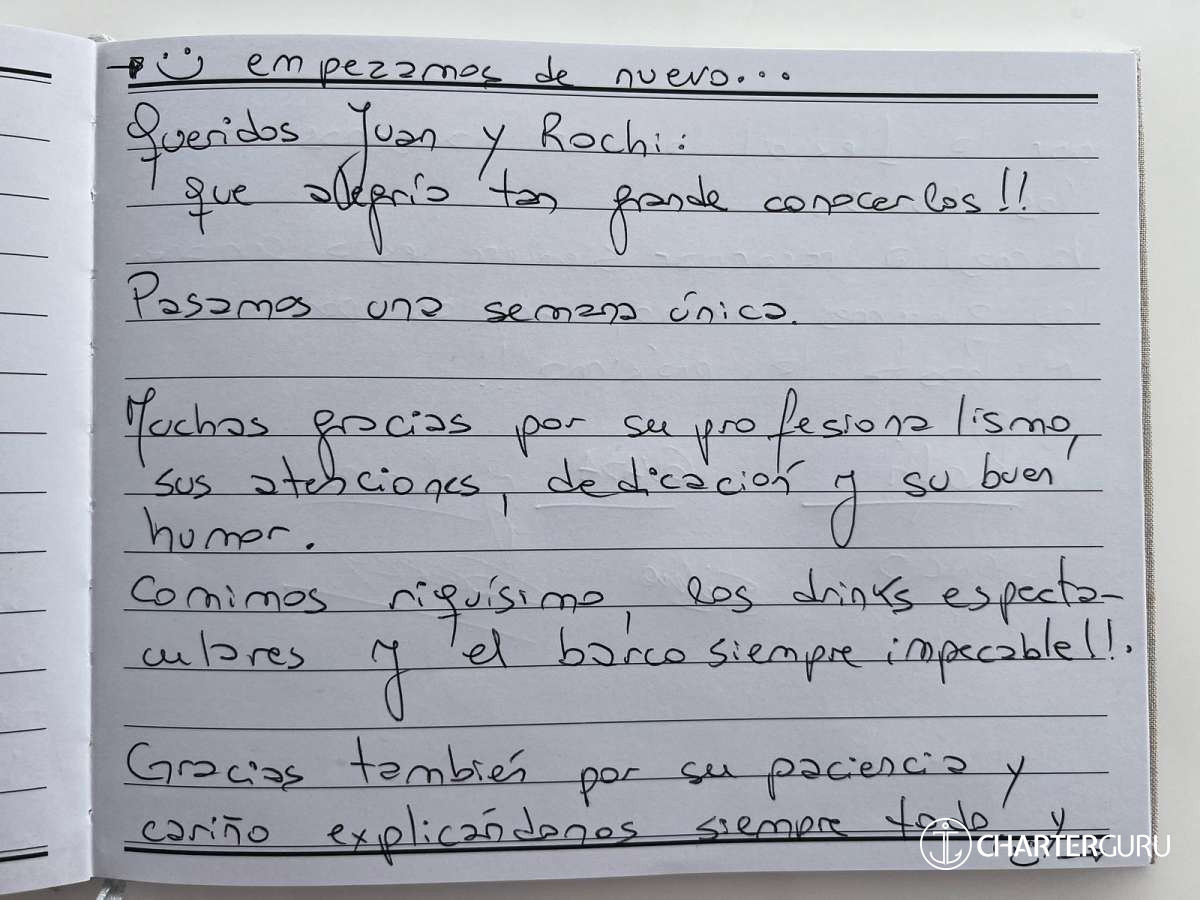 → :) empezamos de nuevo...
Queridos Juan y Rochi:
que alegría tan grande conocerlos!!
Pasamos una semana única.
Muchas gracias por su profesionalismo,
sus atenciones, dedicación y su buen
humor.
Comimos riquísimo, los drinks especta-
culares y el barco siempre impecable!!.
Gracias también por su paciencia y
cariño explicándonos siempre todo y
CHARTERGURU